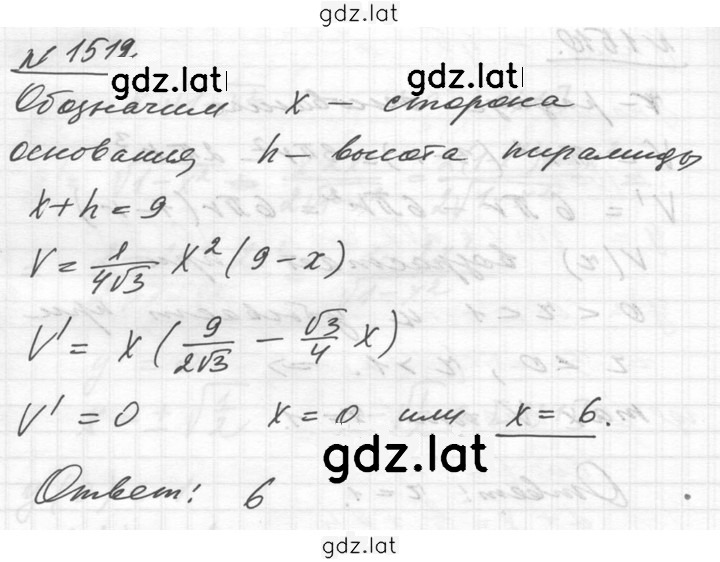 gdz.lat
№ 1519.
gdz.lat gdz.lat
Обозначим x — сторона
основания, h — высота пирамиды
x+h=9
V = 1/(4√3) x²(9-x)
V' = x(9/(2√3) - √3/4 x)
V' = 0 x = 0 или x = 6.
gdz.lat
Ответ: 6
gdz.lat